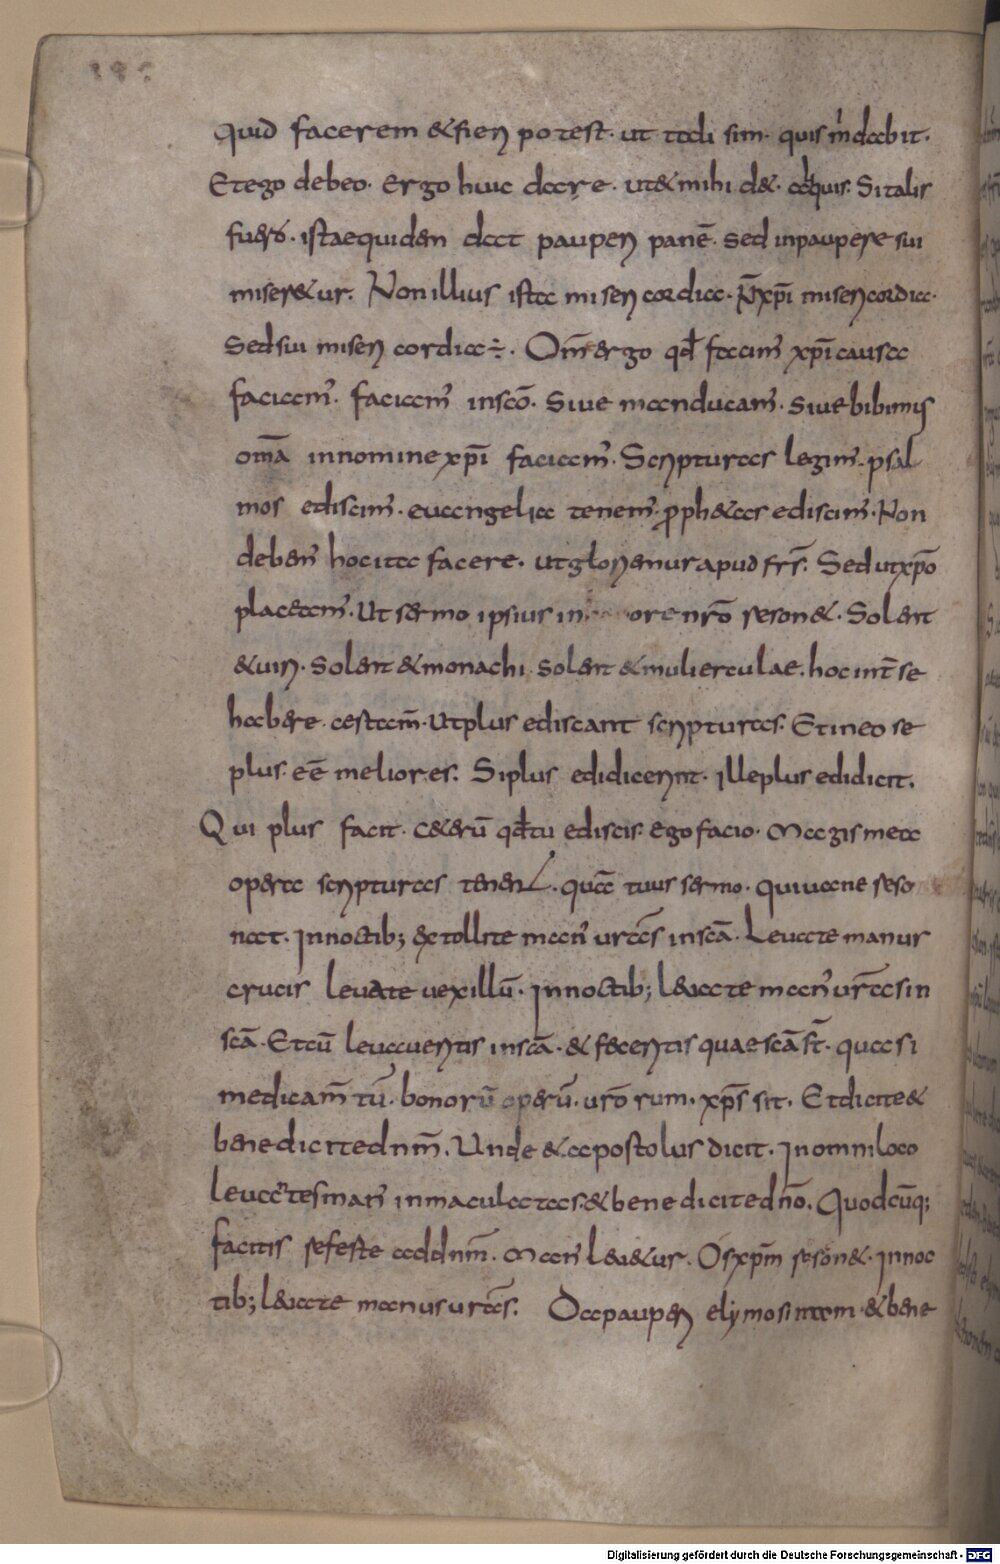 quid facerem & fieri potest· ut tali sim· quis m̄ dabit·
Et ego debeo· Ergo huic dare· ut & mihi d&· aliquis· Si talis
fuero· ista equidem dat pauperi panē· sed in paupere sui
miser&ur· Non illius ista misericordia· Nr̄i xp̄i misericordia·
Sed sui misericordia ÷· Om̄ ergo qd̄ facim̄ xp̄i causa
faciam̄· faciam̄ in scō· Siue manducam̄· siue bibimus
omā in nomine xp̄i faciam̄· Scripturas legim̄· psal
mos ediscim̄· euangelia tenem̄· pph&as ediscim̄· Non
debem̄ hoc ita facere· ut gloriemur apud frs̄· Sed ut xp̄o
placeam̄· Ut sermo ipsius in ore nr̄o reson&· Solent
& uiri· Solent & monachi· solent & mulierculae· hoc int̄ se
habere certam̄· Ut plus ediscant scripturas· Et in eo se
plus· eē meliores· Si plus edidicerint· Ille plus edidicit·
Qui plus facit· C&erū qd̄ tu ediscis· ego facio· Magis mea
opera scripturas tenent· quā tuus sermo· qui uane reso
nat· In noctib; extollite man̄ ur̄as in scā· Leuate manus
crucis leuate uexillū· In noctib; leuate man̄ ur̄as in
scā· Et cū leuaueritis in scā· & feceritis quae scā st̄· quasi
medicam̄tū· bonorū operū· ur̄orum· xp̄s sit· Et dicite &
benedicite dnm̄· Unde & apostolus dicit· In omni loco
leuantes man̄ inmaculatas· & benedicite dnō· Quodcūq;
facitis referte ad dnm̄· Man̄ leu&ur· Os xp̄m reson&· In noc
tib; leuate manus ur̄as· Da pauperi elymosinam· & bene
Digitalisierung gefördert durch die Deutsche Forschungsgemeinschaft - DFG